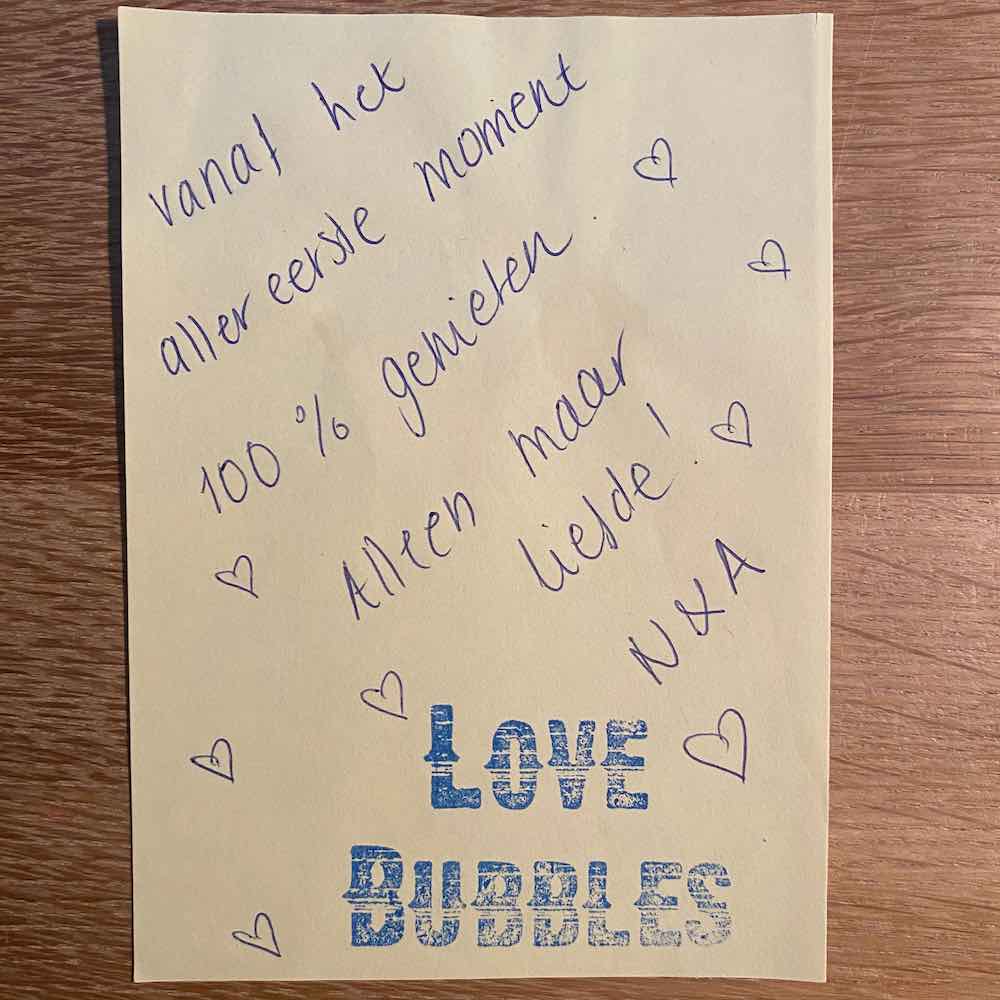 vanaf het
allereerste moment
100% genieten.
Alleen maar
liefde!
N & A
LOVE
BUBBLES